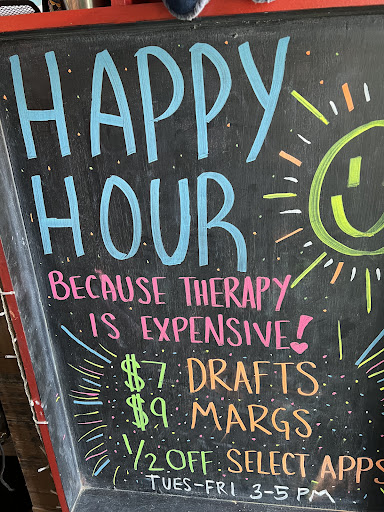 HAPPY
HOUR
BECAUSE THERAPY
IS EXPENSIVE!
$7 DRAFTS
$9 MARGS
1/2 OFF SELECT APPS
TUES-FRI 3-5 PM